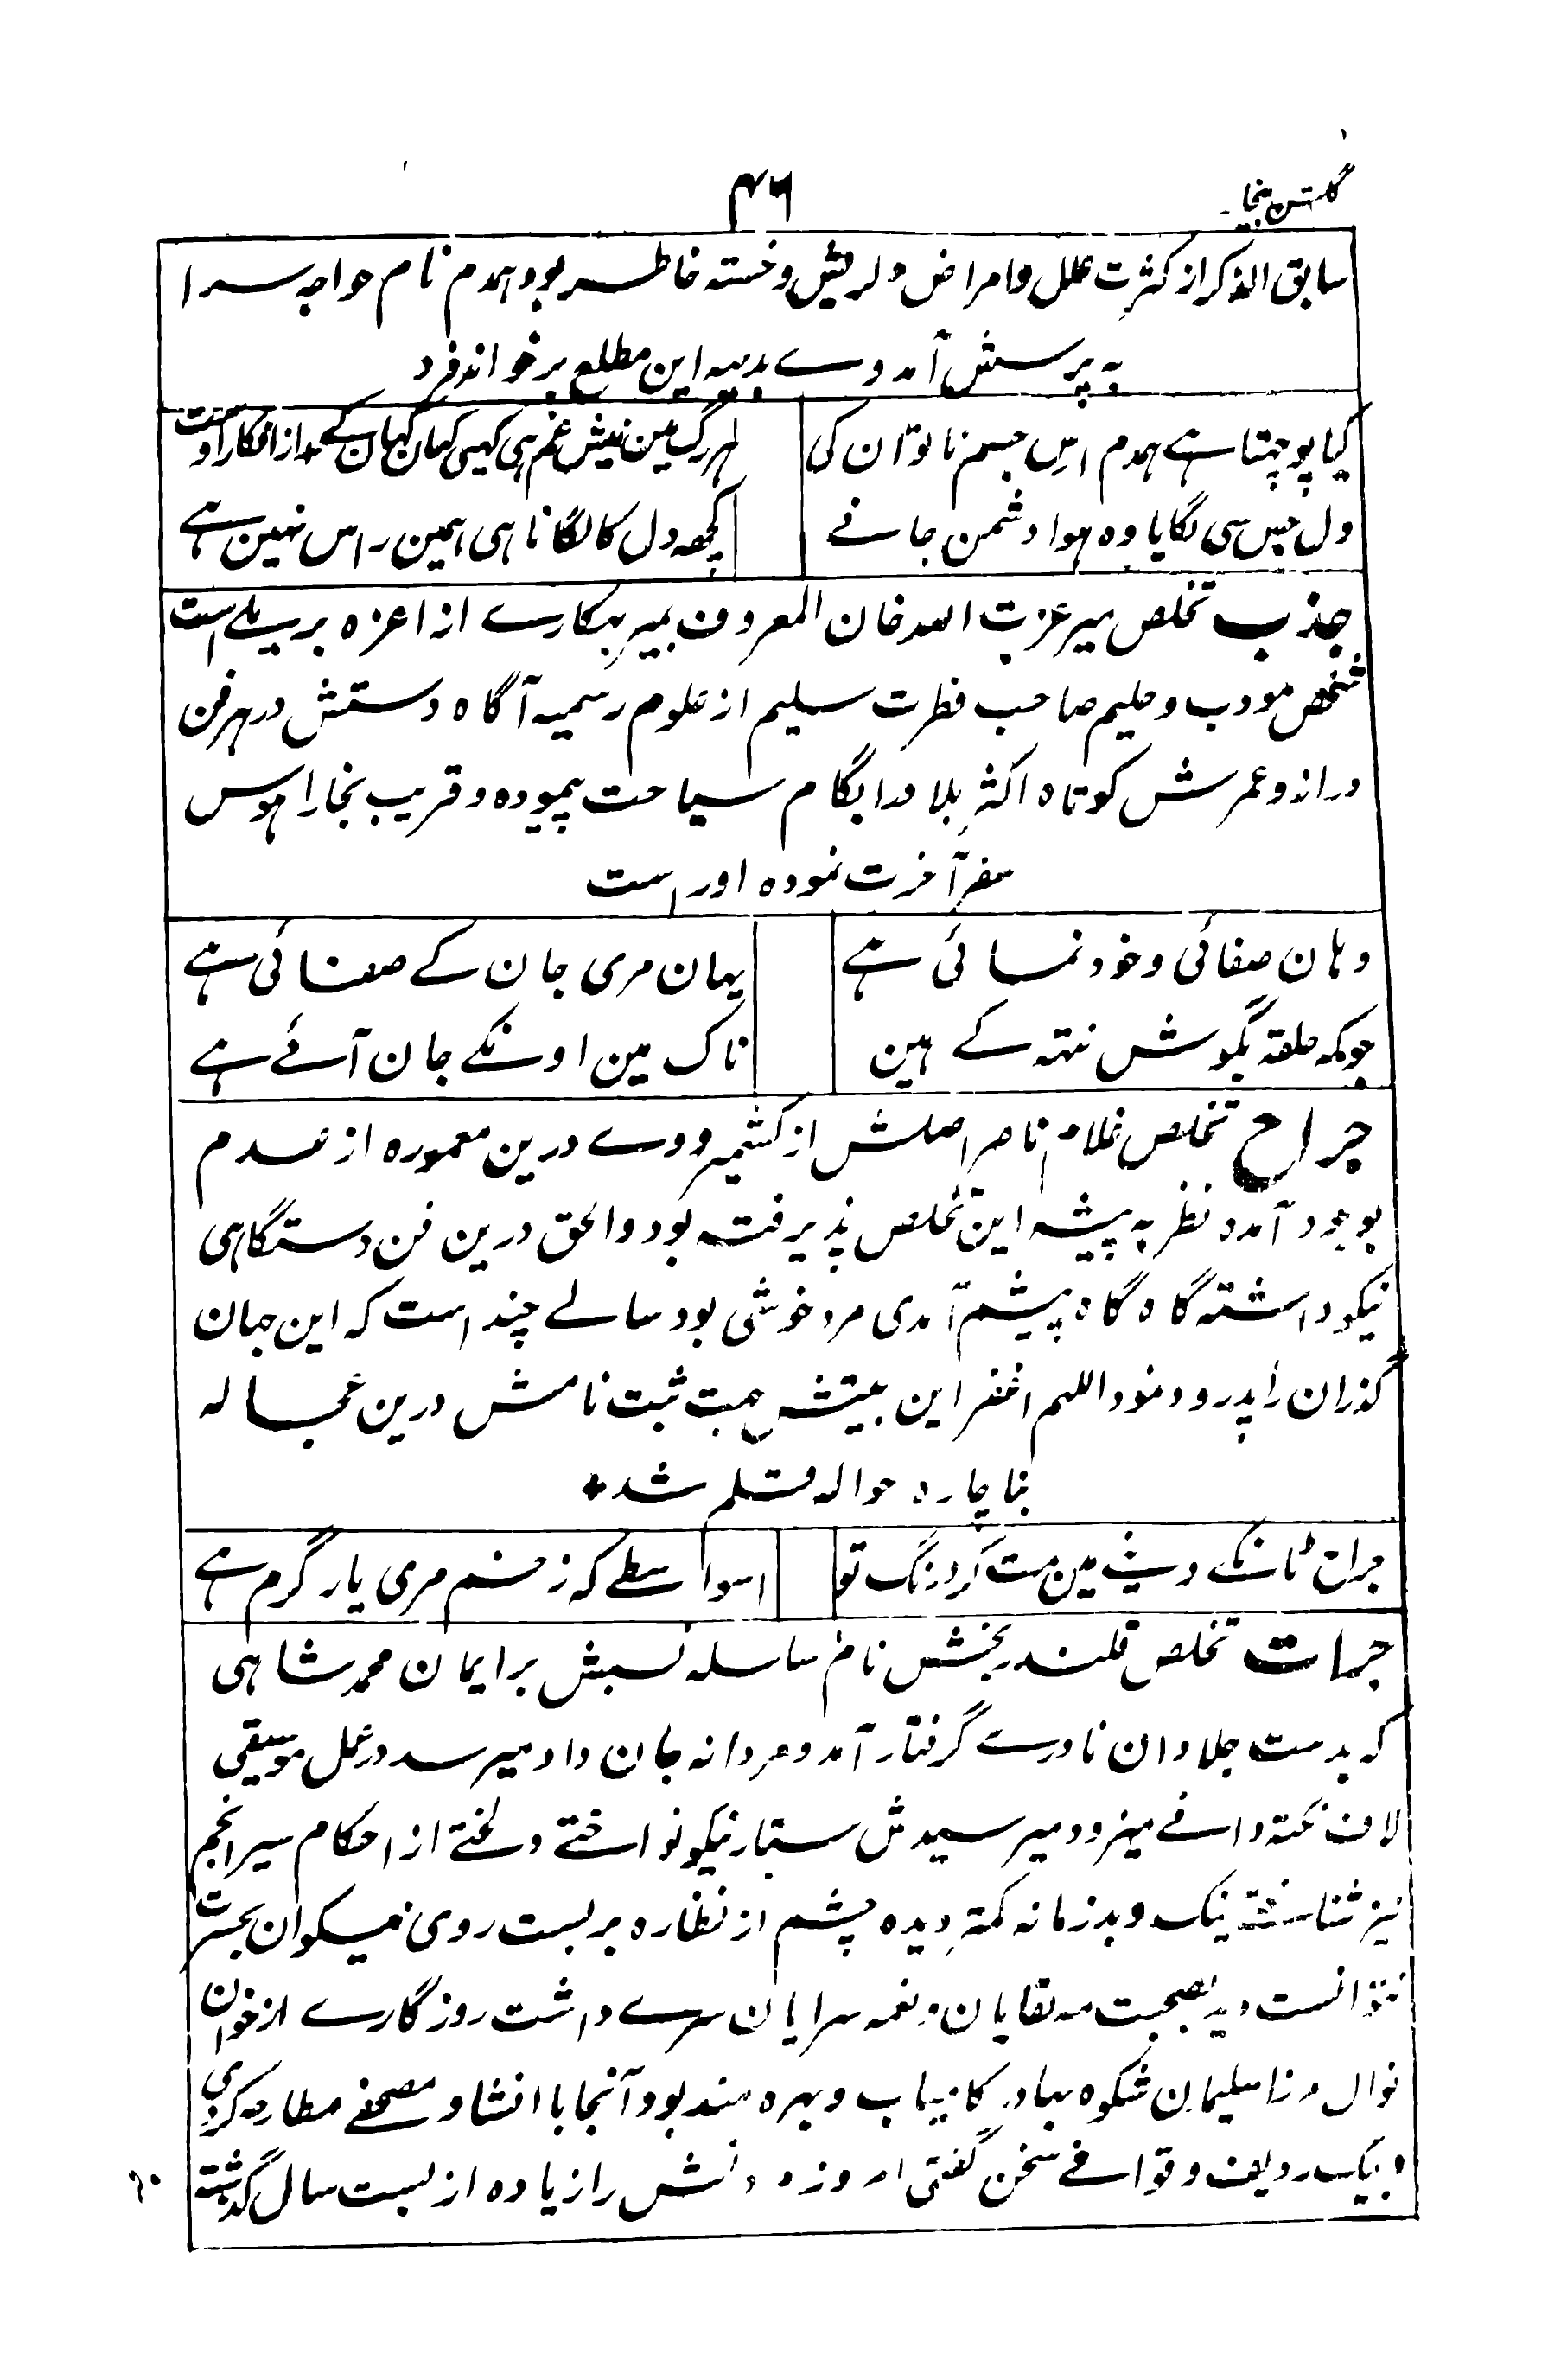 گلشن بیخار
۴۶
سابق الذکر از کثرت علل و امراض دلریش و خسته خاطر بود همدم نام خواجه سرا
به پرسش آمد وے بدیہہ این مطلع برخواند فرد
کیا پوچہتا ہے ہمدم اس جسم ناتوان کی
ہر رگ مین نیش غم ہی کہیی کہان کہان کے * از افکار اوست
دل جس سی لگایا وہ ہوا دشمن جانے
کچھہ دل کا لگانا ہی ہمین راس نہین ہے
جذب تخلص میر عزت اللہ خان المعروف بمیر بہکارے از اعزہ بریلے است
شخص مودب و حلیم صاحب فطرت سلیم از علوم رسمیہ آگاہ دستش در ہر فن
دراز و عمرش کوتاہ اکثر بلاد را بگام سیاحت پیمودہ و قریب بخارا ہوس
سفر آخرت نمودہ اوراست
وہان صفائی و خود نمائی ہے
یہان مری جان کے صفائی ہے
جوکہ حلقہ بگوش نتہہ کے ہین
ناک مین اونکے جان آئے ہے
جراح تخلص غلام ناصر اصلش از کشمیر و وے درین معمورہ از عدم
بوجود آمدہ نظر بہ پیشہ این تخلص پذیرفتہ بود والحق درین فن دستگاہی
نیکو داشتہ گاہ گاہ پیشم آمدی مرد خوشی بود سالے چند است کہ این جہان
گذران را پدرود نمود اللہم اغفر این بیتش بجہت ثبت نامش درین عجالہ
بناچارہ حوالہ قلم شد *
جراح ٹانکے دینے مین مت کر درنگ تو
اسواسطے کہ زخم مری یار گرم ہے
جرات تخلص قلندر بخش نام سلسلہ نسبش برایمان محمد شاہی
کہ بدست جلادان نادرے گرفتار آمد و مردانہ جان داد میرسد در عمل موسیقی
لاف نکتہ دانے میزد و میرسیدش ستار نیکو نواختے و لختے از احکام سیر انجم
نیز شناختے نیک و بد زمانہ کمتر دیدہ چشم از نظارہ بربست روی نیکوان بحسرت
نتوانست دید بصحبت مہ لقایان و نغمہ سرایان سرے داشت روزگارے از خوان
نوال مرزا سلیمان شکوہ بہادر کامیاب و بہرہ مند بود آنجا با انشا و مصحفے مطارحہ کردی
و بیک ردیف و قوافے سخن گفتی امروز دانش را زیادہ از بست سال گذشتہ